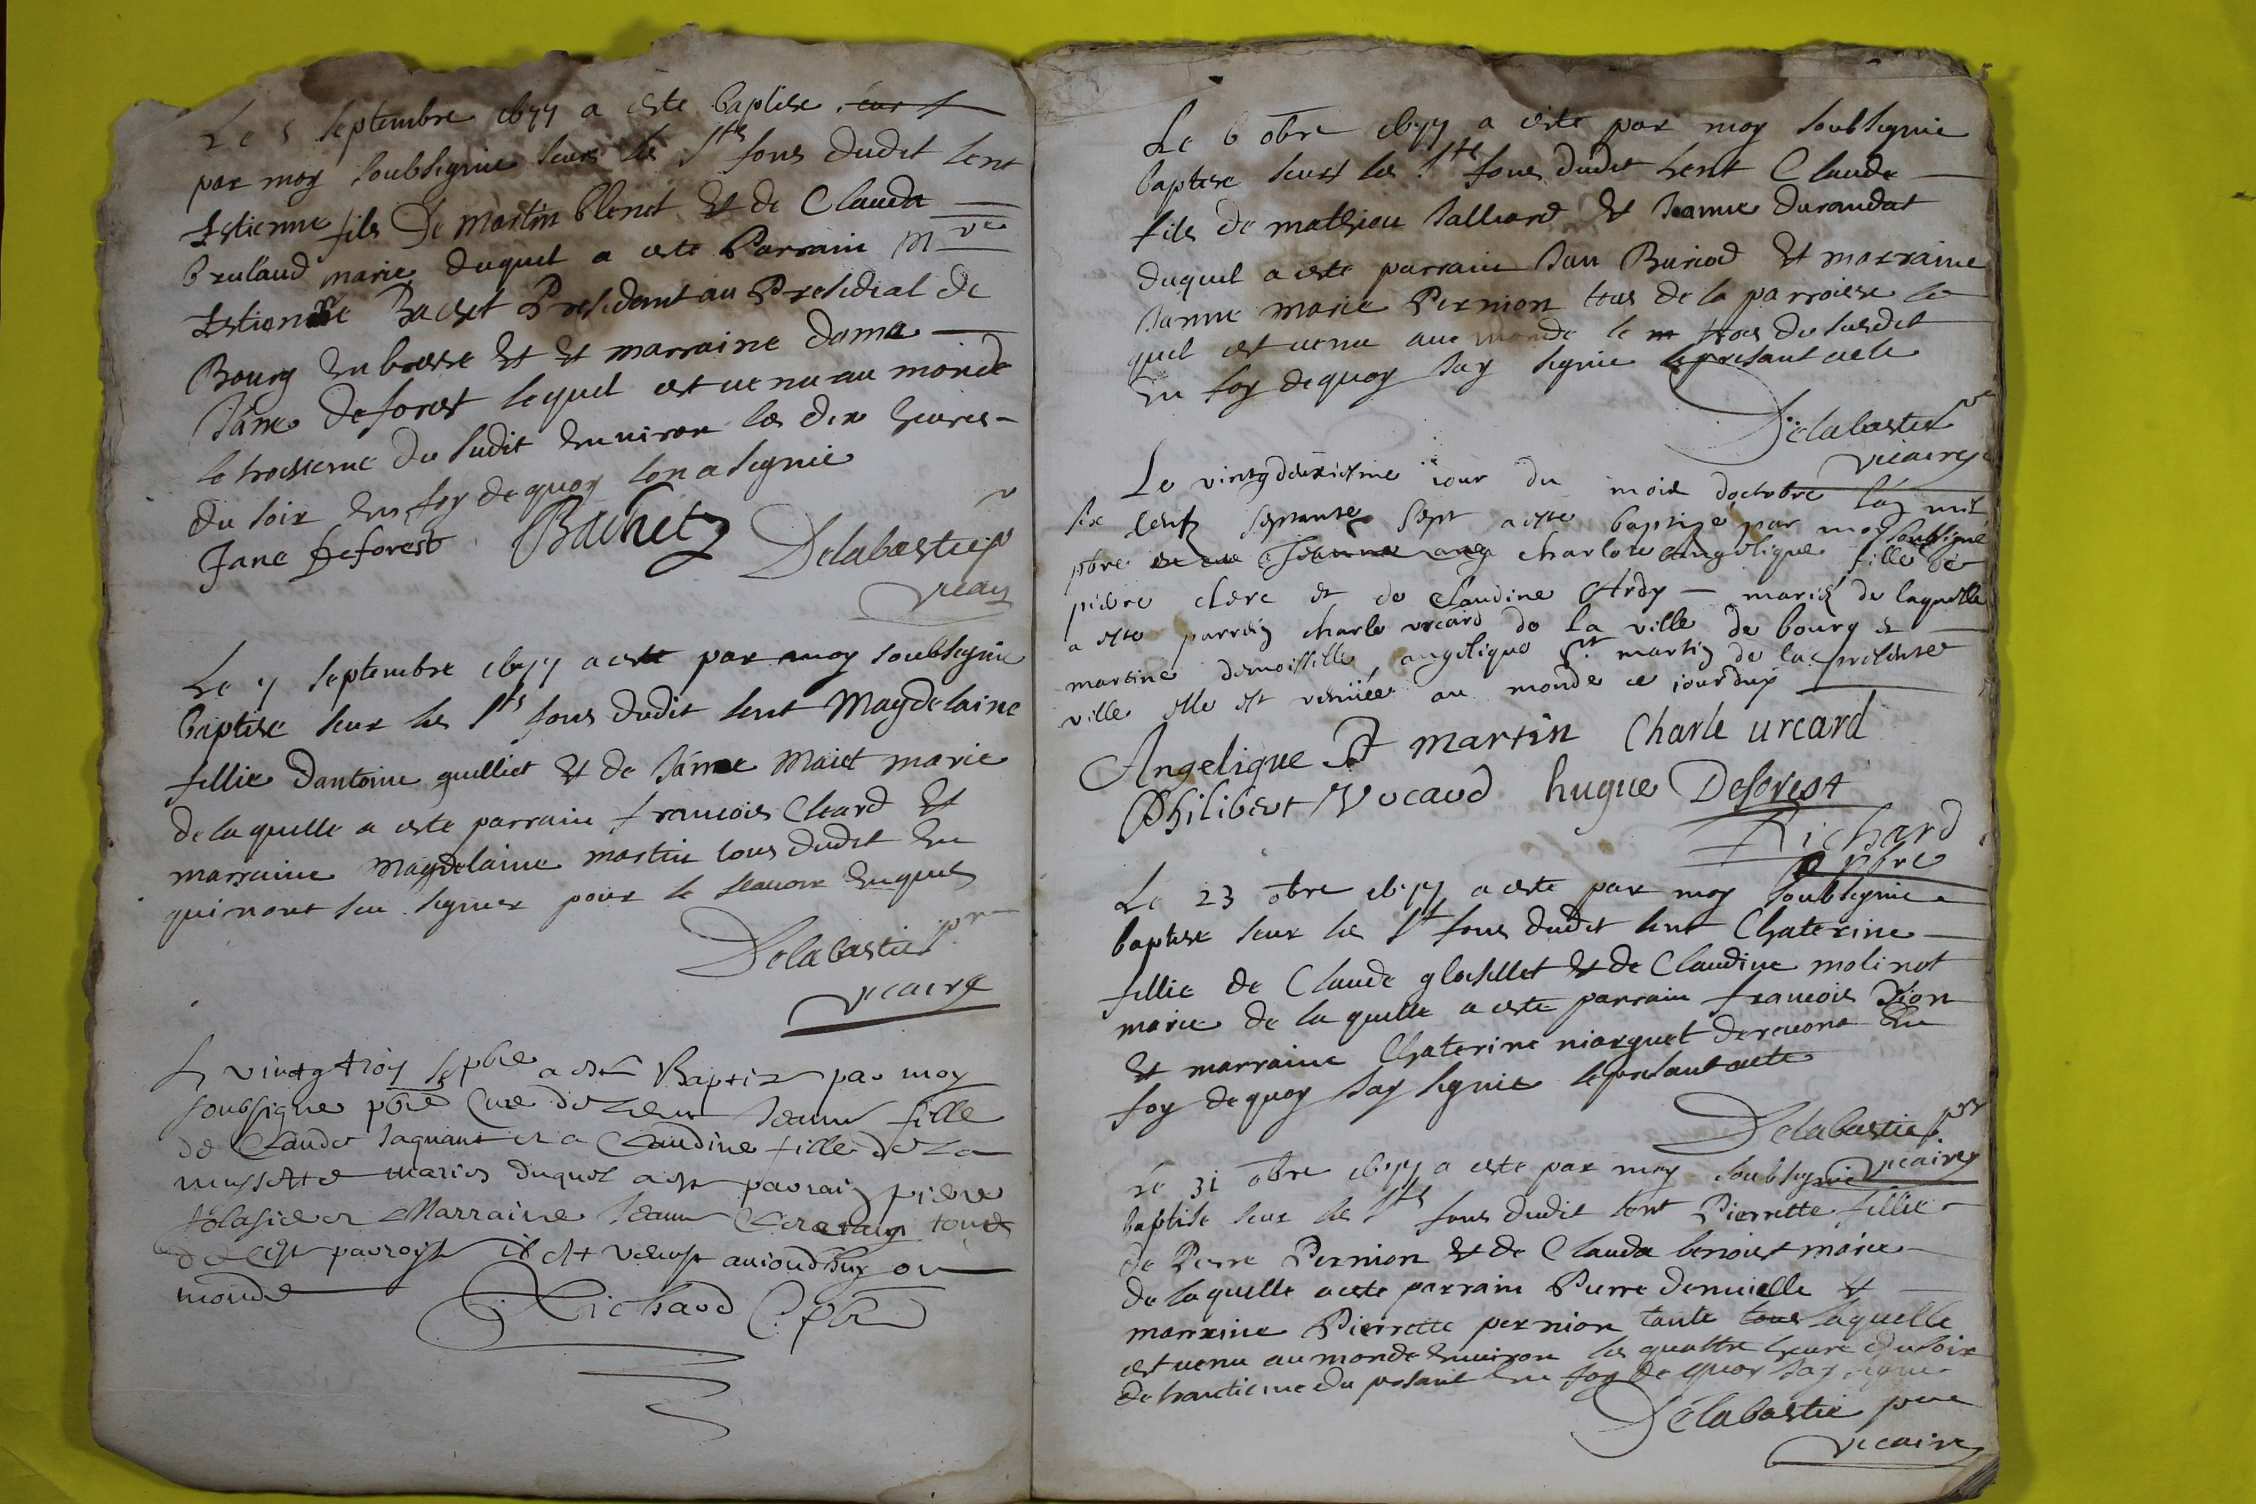 Le 5 septembre 1677 a este baptise
par moy soubsignie seurs les Sts fons dudit lent
Estienne fils De martin blenet Et de Clauda
brulaud marie duquel a este Parrain Mre
Estienne Bachet Presidant au Presidial de
Bourg En bresse Et Et marraine dama
Jane deforest lequel est venu au monde
le troisieme du sudit Environ les dix heures
du soir En foy de quoy lon a signie
Jane Deforest Bachet Delabastie pr
vicaire
Le 7 septembre 1677 a este par moy soubsignie
baptise seur les Sts fons dudit lent Magdelaine
fillie dantoine guilliet Et de Janne Maiet marie
de laquelle a este parrain francois Cleard Et
marraine Magdelaine martin tous dudit
qui nont seu signer pour le scavoir Enquis
Delabastie pre
vicaire
Le vingt troy sepbre a este Baptize par moy
soubsigne pbre Cure de Lent Jeanne fille
de Claude Jaquant et a Claudine fille de la
mussette maries duquel a este parrain pierre
et Marraine Jeanne tous
de cest parroisse il est venust auiourdhuy ou
monde
Richard C. pbre
Le 6 obre 1677 a este par moy soubsignie
baptise seur les Sts fons dudit Lent Claude
fils de mathieu Salliard Et Jeanne durandat
duquel a este parrain Jan Buriod Et marraine
Janne marie Pernion tous de la parroisse le
quel est venu aux monde le trois du susdit
En foy de quoy Jay signie le presant acte
Delabastie pre
vicaire
Le vingdeuxiesme iour du mois doctobre lan mil
six centz septante sept a este baptize par moy soubsigné
pbre charlote Angelique fille de
pierre clerc et de Claudine Ardy mariés de laquelle
a este parrein charle urcard de la ville de bourg et
mareine demoiselle angelique st martin de la presente
ville elle est venüee au monde ce iourduy
Angelique St martin Charle urcard
Philibert Vucaud hugue Deforest
Richard
pbre
Le 23 obre 1677 a este par moy soubsignie
baptise seur les St fons dudit lent Chaterine
fillie de Claude glosellet Et de Claudine molinot
marie de laquelle a este parrain francois Dion
Et marraine Chaterine niarquet derevona En
foy de quoy Jay signie le presant acte
Delabastie pre
vicaire
Le 31 obre 1677 a este par moy soubsignie
baptise seur les Sts fons dudit lent Pierrette fillie
de Pierre Pernion Et de Clauda benoist marie
de laquelle a este parrain Pierre demielle Et
marraine Pierrette pernion tante tous laquelle
est venu au monde Environ les quattre heure du soir
de trantieme du presant En foy de quoy Jay signie
Delabastie pre
vicaire